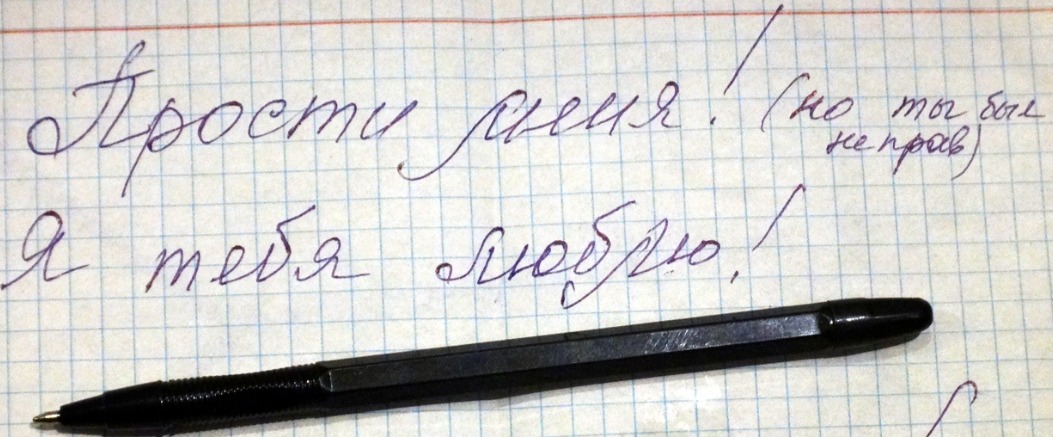 Прости меня! (но ты был
не прав)
Я тебя люблю!